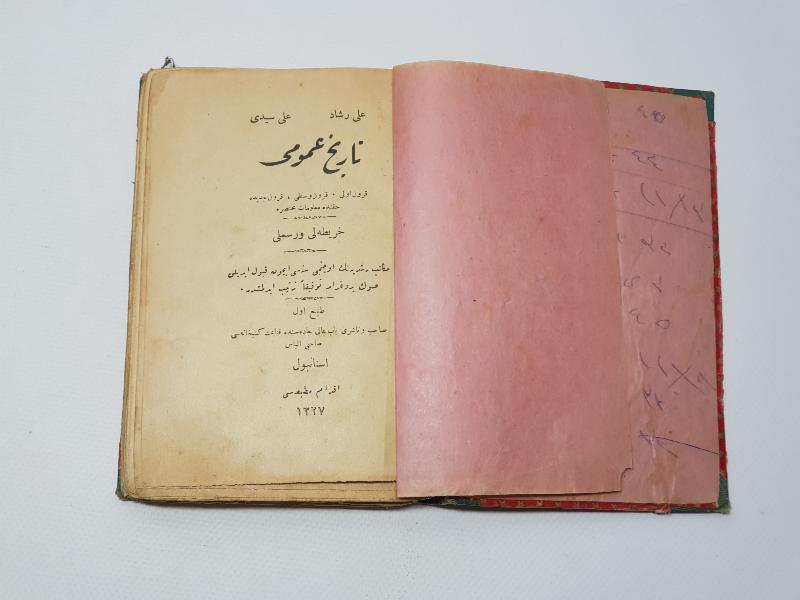 علی رشاد علی سیدی
تاریخ عمومی
قرون اولی ، قرون وسطی ، قرون جدیده
حقنده معلومات مختصره
خریطه‌لی ورسملی
مکاتب رشدیه‌نك اوچنجی سنه‌سی ایچون قبول ایدیلن
صوك پروغرامه توفیقاً ترتیب ایدلمشدر .
طبع اول
صاحب و ناشری باب عالی جاده‌سنده قناعت کتبخانه‌سی
صاحبی الیاس
استانبول
اقدام مطبعه‌سی
١٣٢٧